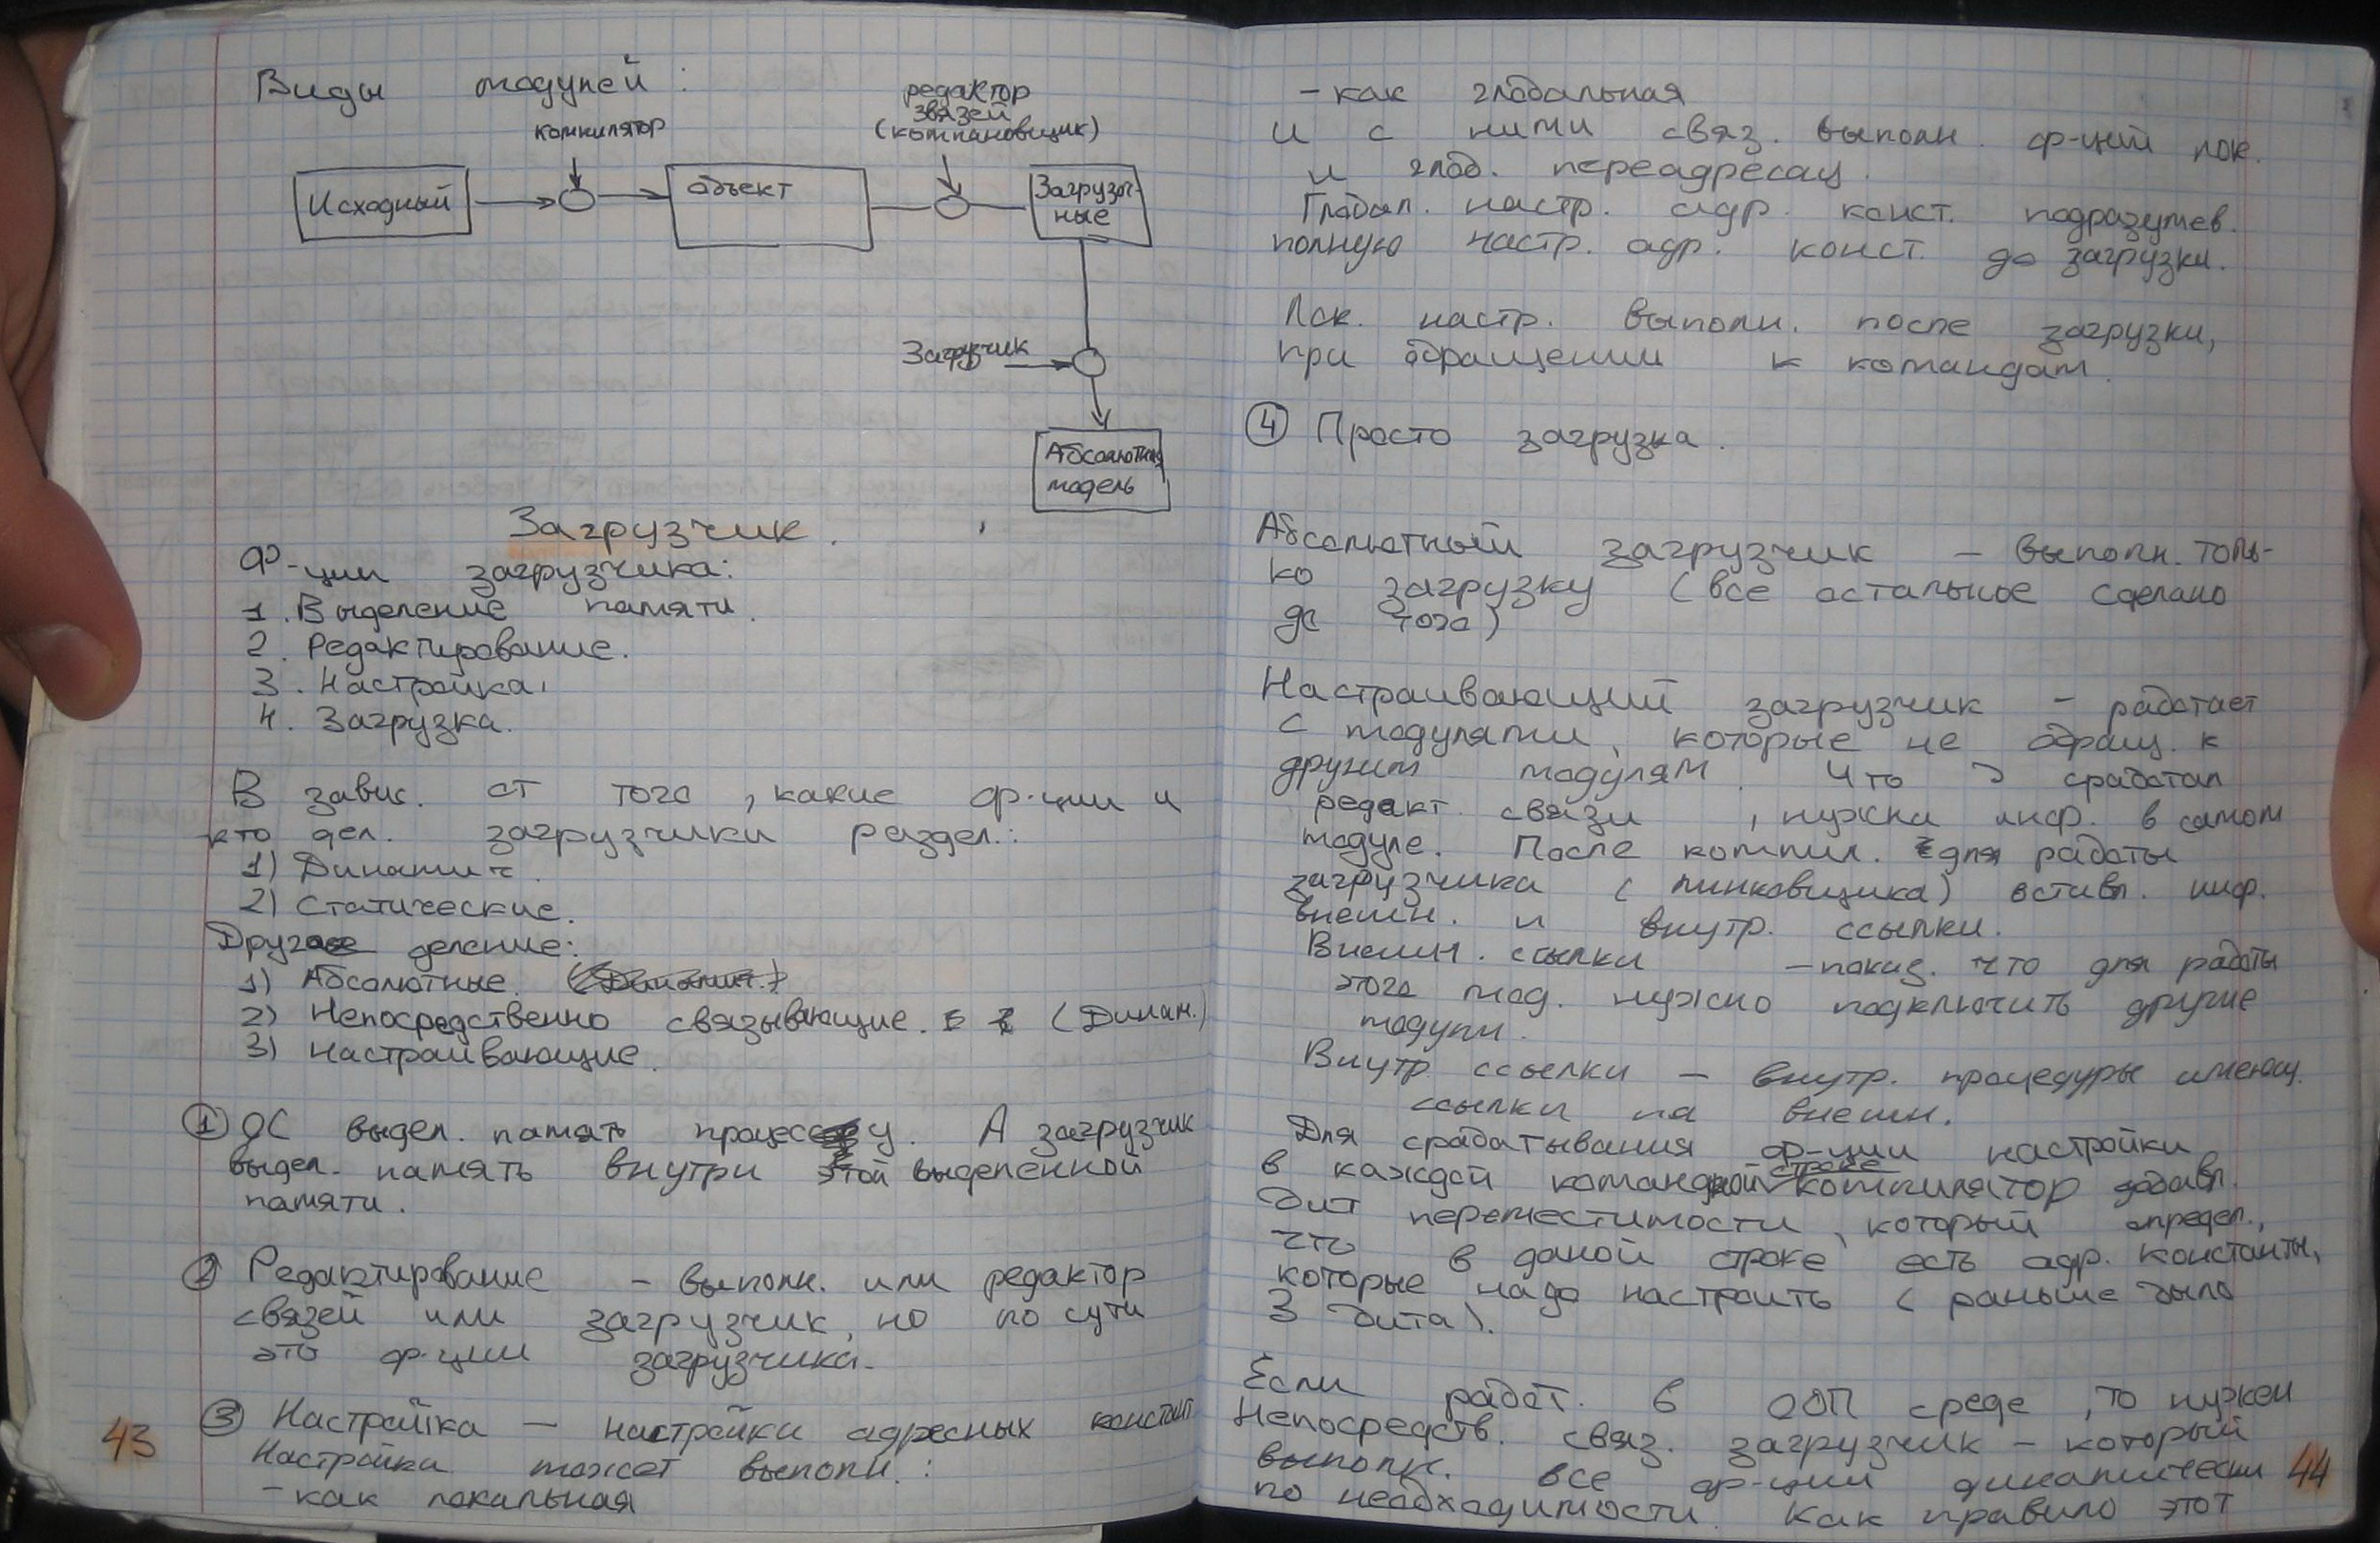 Виды модулей:
компилятор
редактор
звязей
(компановщик)
Исходный
объект
Загрузоч-
ные
Загрузчик
Абсолютная
модель
Загрузчик.
Ф-ции загрузчика:
1. Выделение памяти.
2. Редактирование.
3. Настройка.
4. Загрузка.
В завис. от того, какие ф-ции и
кто дел. загрузчики раздел.:
1) Динамич.
2) Статические.
Другое деление:
1) Абсолютные. (Динамич.)
2) Непосредственно связывающие. (Динам.)
3) Настраивающие.
① ОС выдел. память процессу. А загрузчик
выдел. память внутри этой выделенной
памяти.
② Редактирование - выполн. или редактор
связей или загрузчик, но по сути
это ф-ции загрузчика.
③ Настройка — настройки адресных констант.
Настройка может выполн.:
- как локальная
43
- как глобальная
и с ними связ. выполн. ф-ций лок.
и глоб. переадресац.
Глобал. настр. адр. конст. подразумев.
полную настр. адр. конст. до загрузки.
Лок. настр. выполн. после загрузки,
при обращении к командам.
④ Просто загрузка.
Абсолютный загрузчик - выполн. толь-
ко загрузку (все остальное сделано
до того)
Настраивающий загрузчик - работает
с модулями, которые не обращ. к
другим модулям. Что сработал
редакт. связи, нужна инф. в самом
модуле. После компил. для работы
загрузчика (линковщика) вставл. инф.
внешн. и внутр. ссылки.
Внешн. ссылки - показ. что для работы
этого мод. нужно подключить другие
модули.
Внутр. ссылки - внутр. процедуры имеющ.
ссылки на внешн.
Для срабатывания ф-ции настройки
в каждой командной строке компилятор добавл.
бит переместимости, который определ.,
что в даной строке есть адр. константы,
которые надо настроить (раньше было
3 бита).
Если работ. в ООП среде, то нужен
Непосредств. связ. загрузчик - который
выполн. все ф-ции динамически
по необходимости. Как правило этот
44